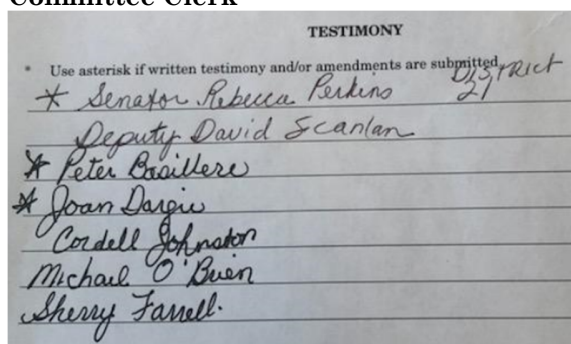 Committee Clerk
TESTIMONY
* Use asterisk if written testimony and/or amendments are submitted.
* Senator Rebecca Perkins District 21
Deputy David Scanlan
* Peter Basillere
* Joan Dargie
Cordell Johnston
Michael O'Brien
Sherry Farrell.